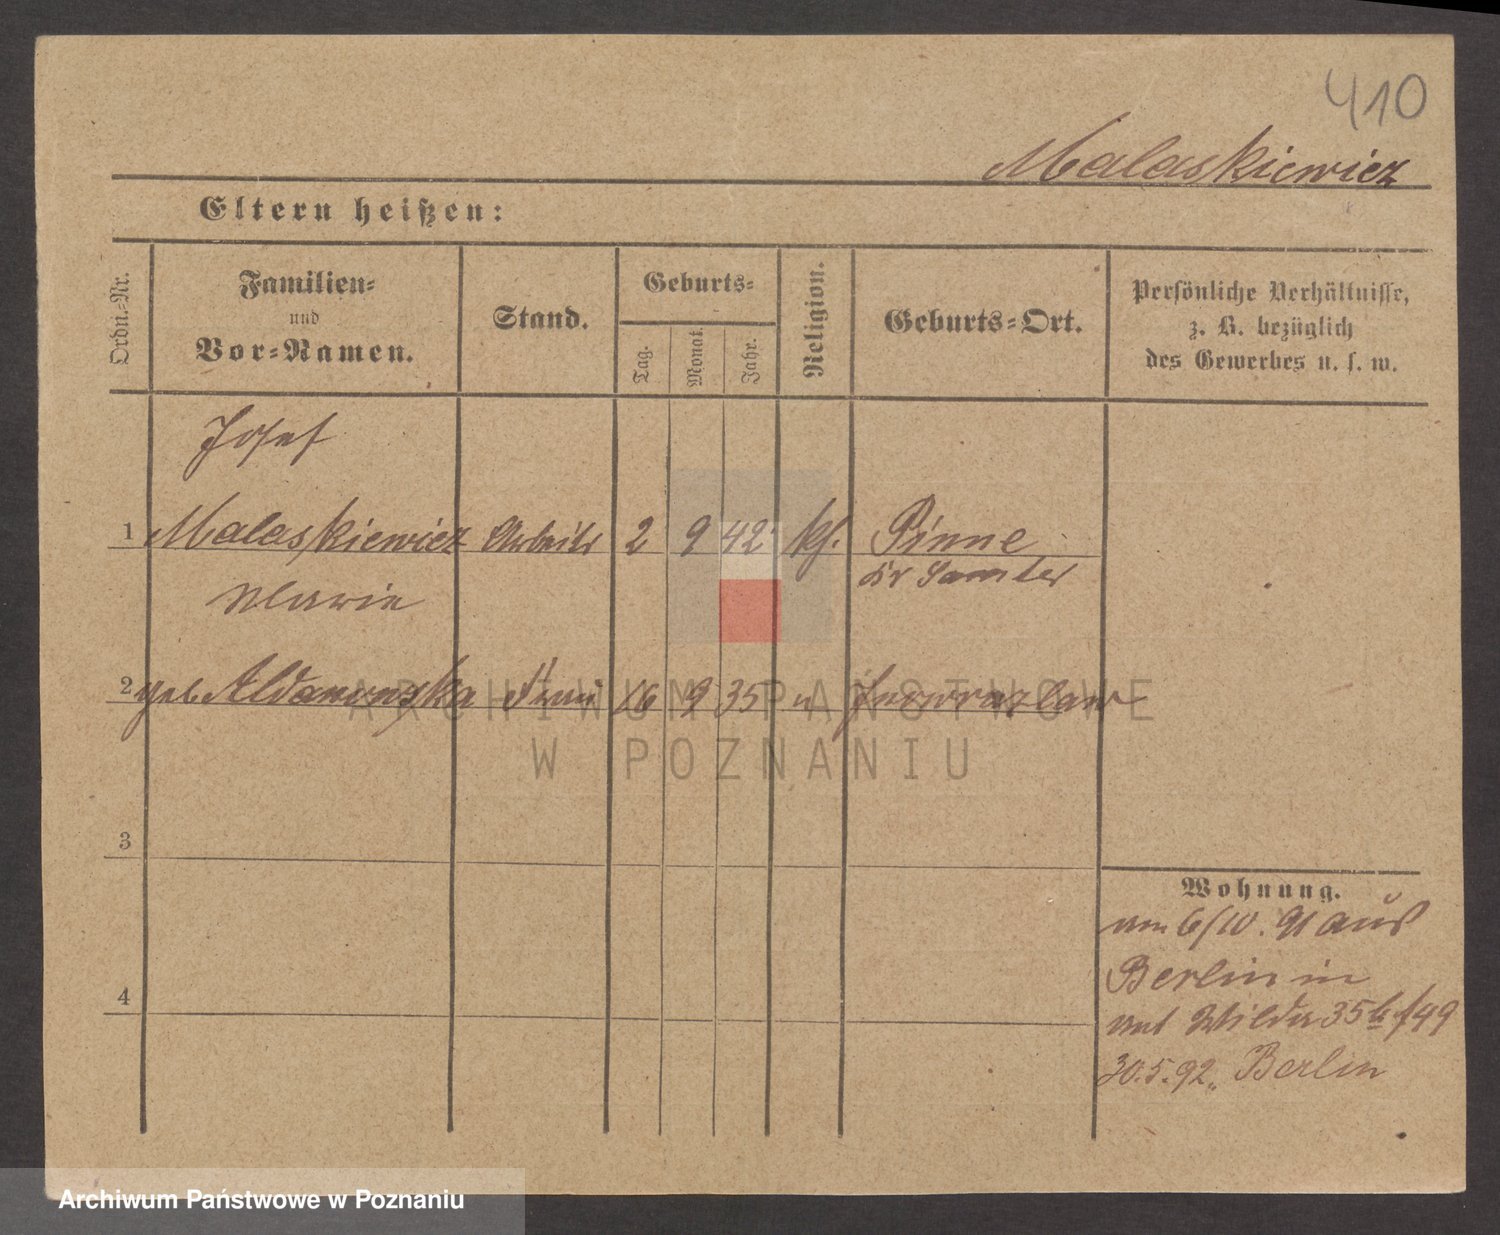 410
Malaskiewicz
Eltern heißen:
Ordn.-Nr.
Familien-
und
Vor-Namen.
Stand.
Geburts-
Tag.
Monat.
Jahr.
Religion.
Geburts-Ort.
Persönliche Verhältnisse,
z. B. bezüglich
des Gewerbes u. s. w.
Josef
1 Malaskiewicz Arbeiter 2 9 42 kf. Pinne
Kr Samter
Marie
2 geb. Aldanowska Frau 16 9 35 " Inowrazlaw
3
4
Wohnung.
am 6/10. 91 aus
Berlin in
Wilda 35b f 49
30.5.92. Berlin
ARCHIWUM PAŃSTWOWE
W POZNANIU
Archiwum Państwowe w Poznaniu